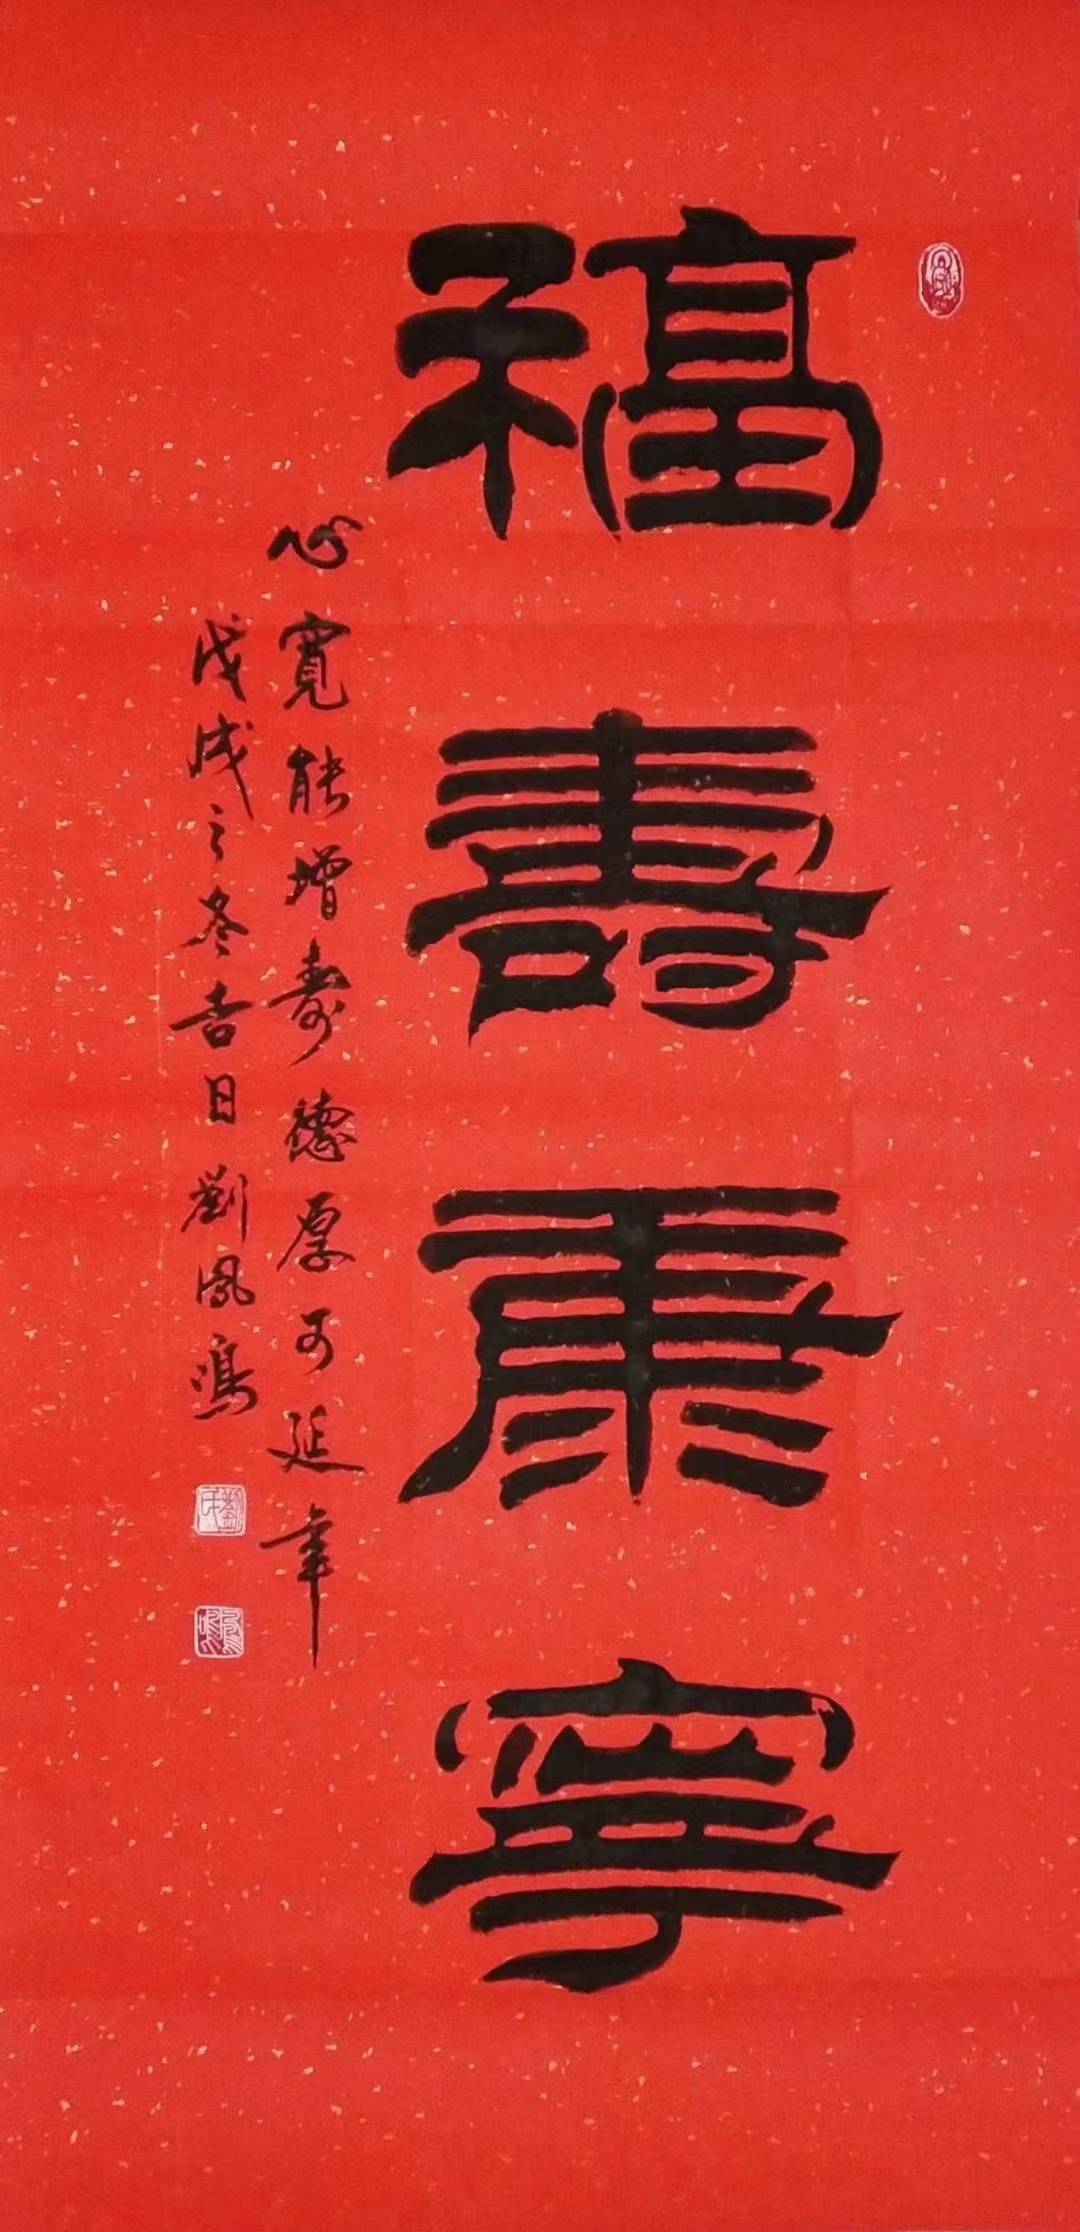 福壽康寧
心寬能增壽德厚可延年
戊戌之冬吉日劉鳳鳴
劉氏
鳳鳴